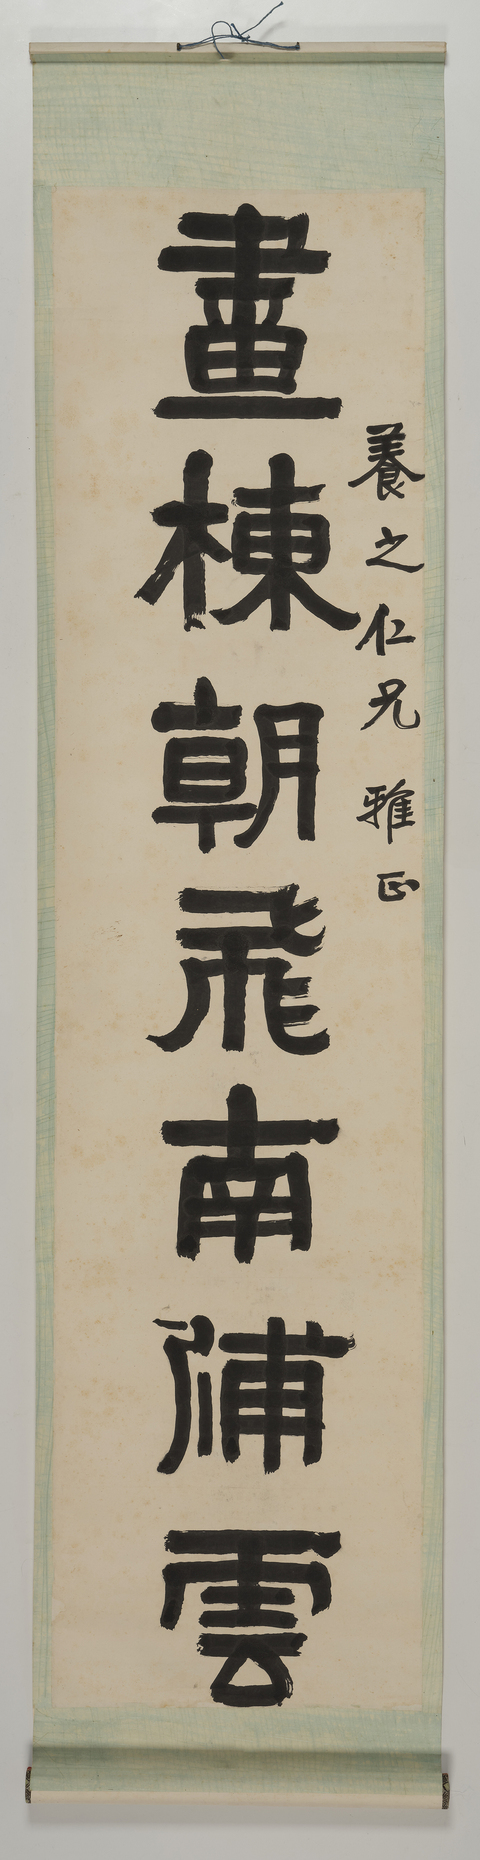 養之仁兄雅正
畫棟朝飛南浦雲